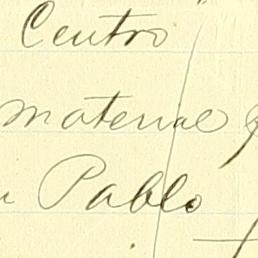 Centro
material
Pablo